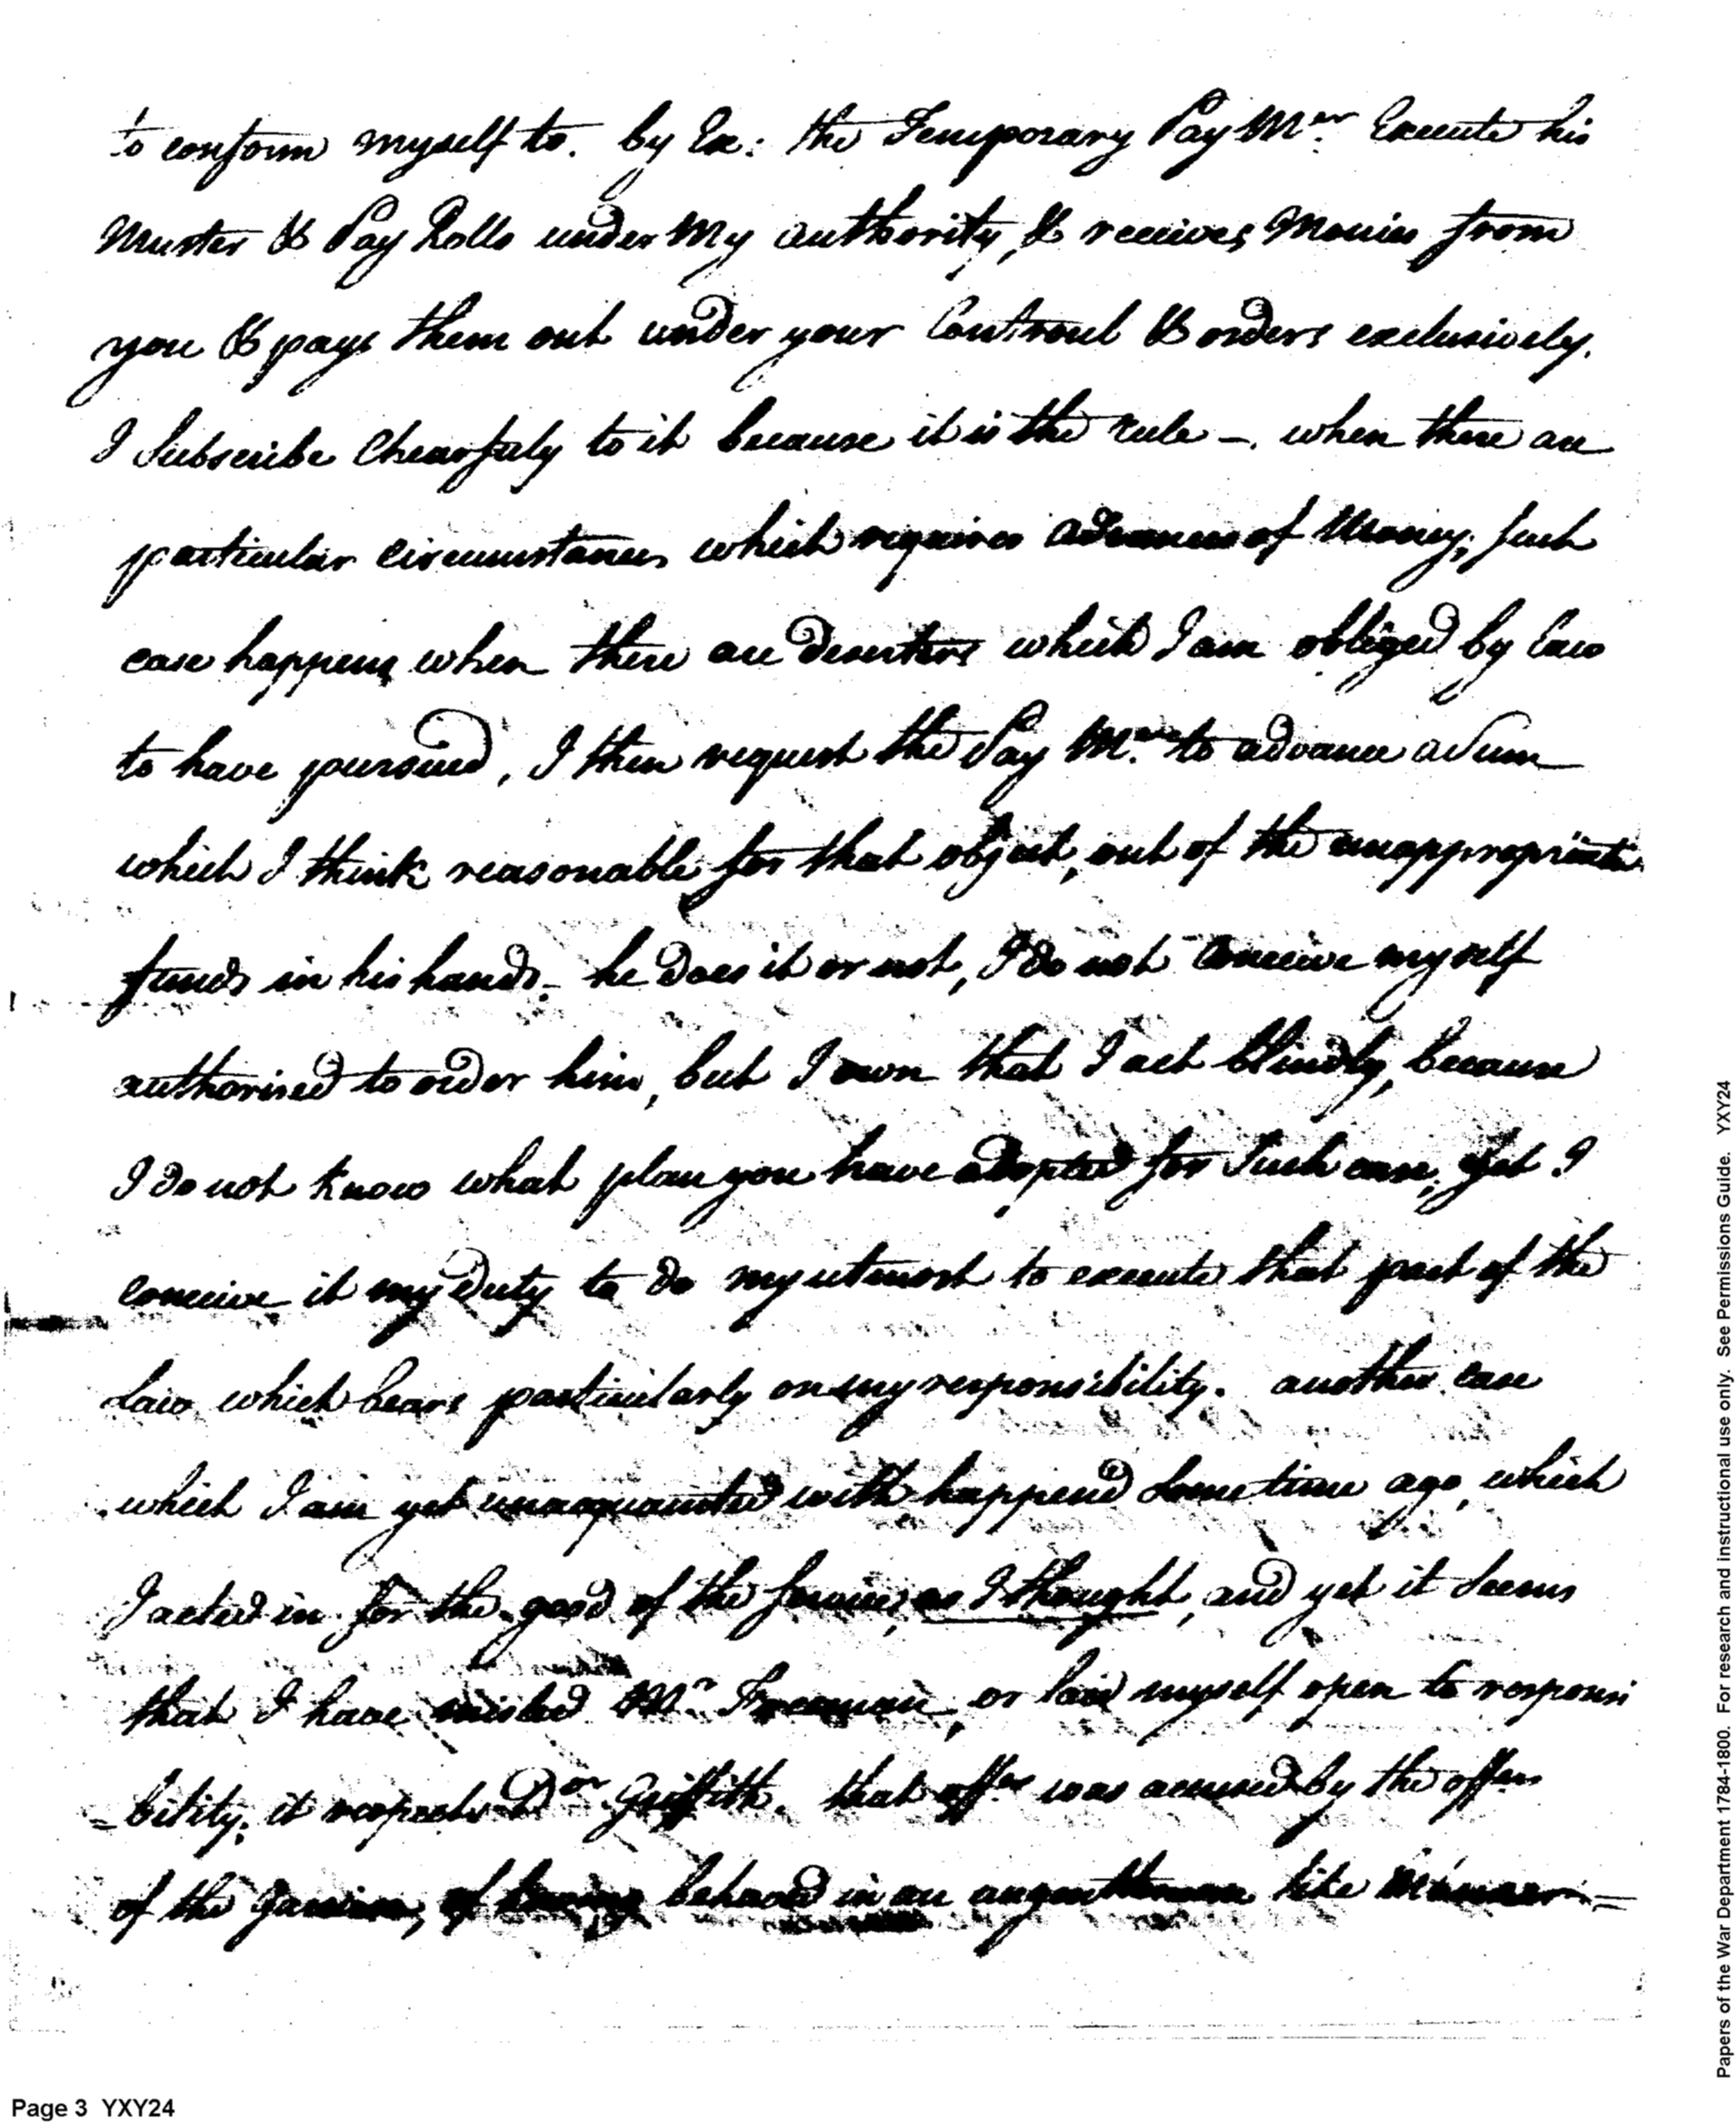 to conform myself to. by Ex: the Temporary Pay Mer. Execute his
Muster & Pay Rolls under My authority, & receives Monies from
you & pays them out under your Controul & orders exclusively.
I Subscribe Chearfuly to it because it is the rule -. when there are
particular circumstances which requires advances of Money; such
case happens when there are deserters which I am obliged by law
to have pursued, I then request the Pay Mer. to advance a Sum
which I think reasonable for that object, out of the unappropriate
funds in his hands. he does it or not, I do not conceive myself
authorised to order him, but I own that I act blindly, because
I do not know what plan you have adopted for Such case, yet I
conceive it my duty to do my utmost to execute that part of the
Law which bears particularly on my responsibility. another case
which I am yet unacquainted with, happend Some time ago, which
I acted in for the good of the service, as I thought, and yet it Seems
that I have misled Mr. Freeman, or laid myself open to responsi
=bility; it respects Dor. Griffith. that offer was accused by the offers
of the Garrison, of having behaved in an ungentleman like Manner =
Page 3 YXY24
Papers of the War Department 1784-1800. For research and instructional use only. See Permissions Guide. YXY24